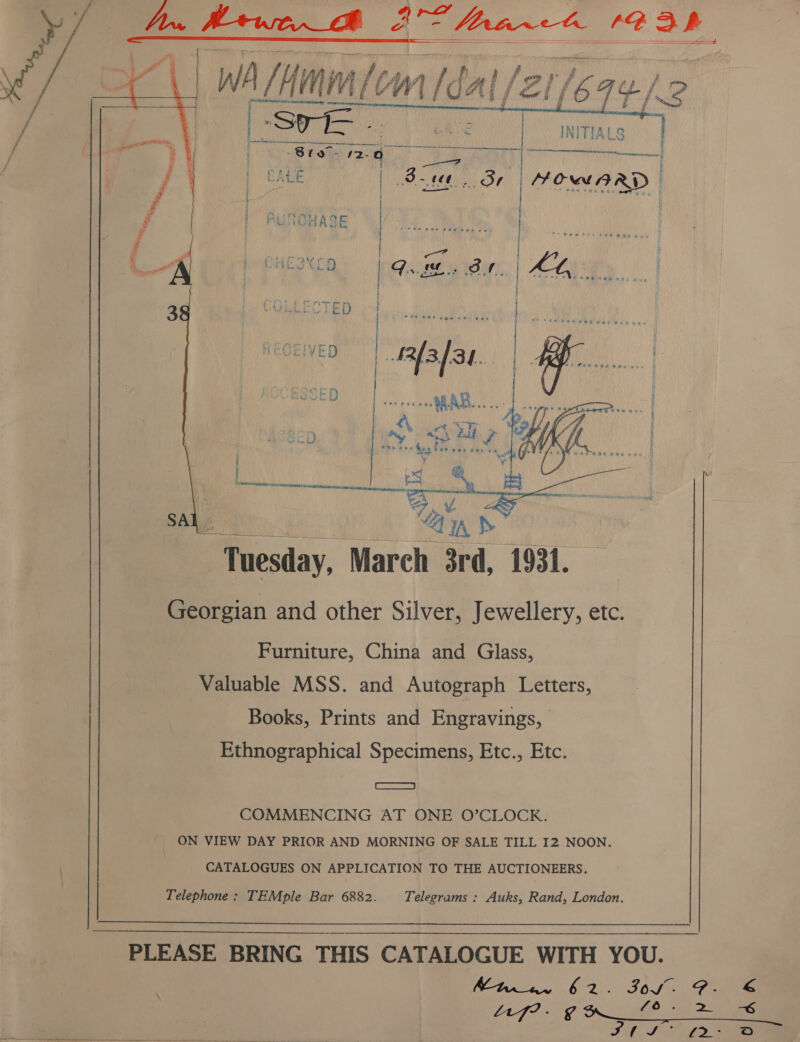 Mr Howard 3rd March 1931
WA/HMM/COM/Sal/21/694/2
INITIALS
SALE 3 - III . 31 HOWARD
PURCHASE
CHECKED 9. III . 31. KH
COLLECTED
RECEIVED 12/3/31.
ACCESSED MAR
PASSED
A
38
SAL
Tuesday, March 3rd, 1931.
Georgian and other Silver, Jewellery, etc.
Furniture, China and Glass,
Valuable MSS. and Autograph Letters,
Books, Prints and Engravings,
Ethnographical Specimens, Etc., Etc.
COMMENCING AT ONE O’CLOCK.
ON VIEW DAY PRIOR AND MORNING OF SALE TILL 12 NOON.
CATALOGUES ON APPLICATION TO THE AUCTIONEERS.
Telephone : TEMple Bar 6882. Telegrams : Auks, Rand, London.
PLEASE BRING THIS CATALOGUE WITH YOU.
62. 305. 9. 6
10 . 2 6
315 12 - 0